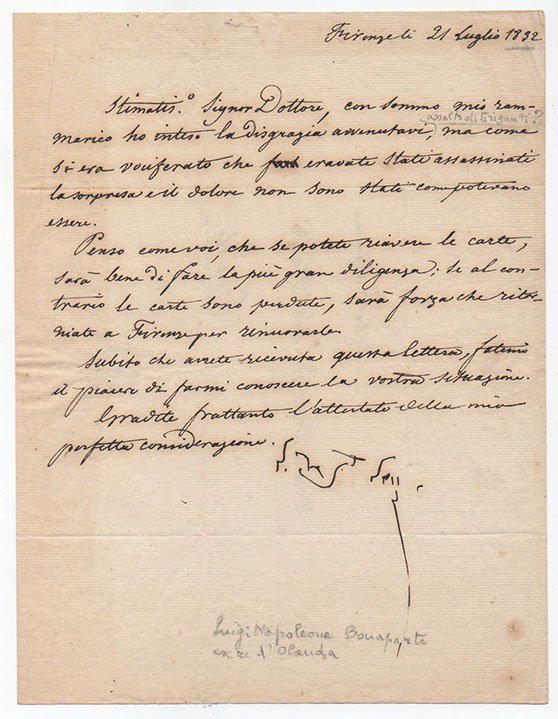 Firenze li 21 Luglio 1832
Stimatis.º Signor Dottore, con sommo mio ram-
marico ho inteso la disgrazia avvenutavi, ma come
assalto di briganti?
si era vociferato che eravate stati assassinati
la sorpresa e il dolore non sono stati com potevano
essere.
Penso come voi, che se potete riavere le carte,
sarà bene di fare la più gran diligenza: se al con-
trario le carte sono perdute, sarà forza che ritor-
niate a Firenze per rinnovarle.
Subito che avrete ricevuta questa lettera, fatemi
il piacere di farmi conoscere la vostra situazione.
Gradite frattanto l'attestato della mia
perfetta considerazione.
Luigi Napoleone Bonaparte
ex re d'Olanda